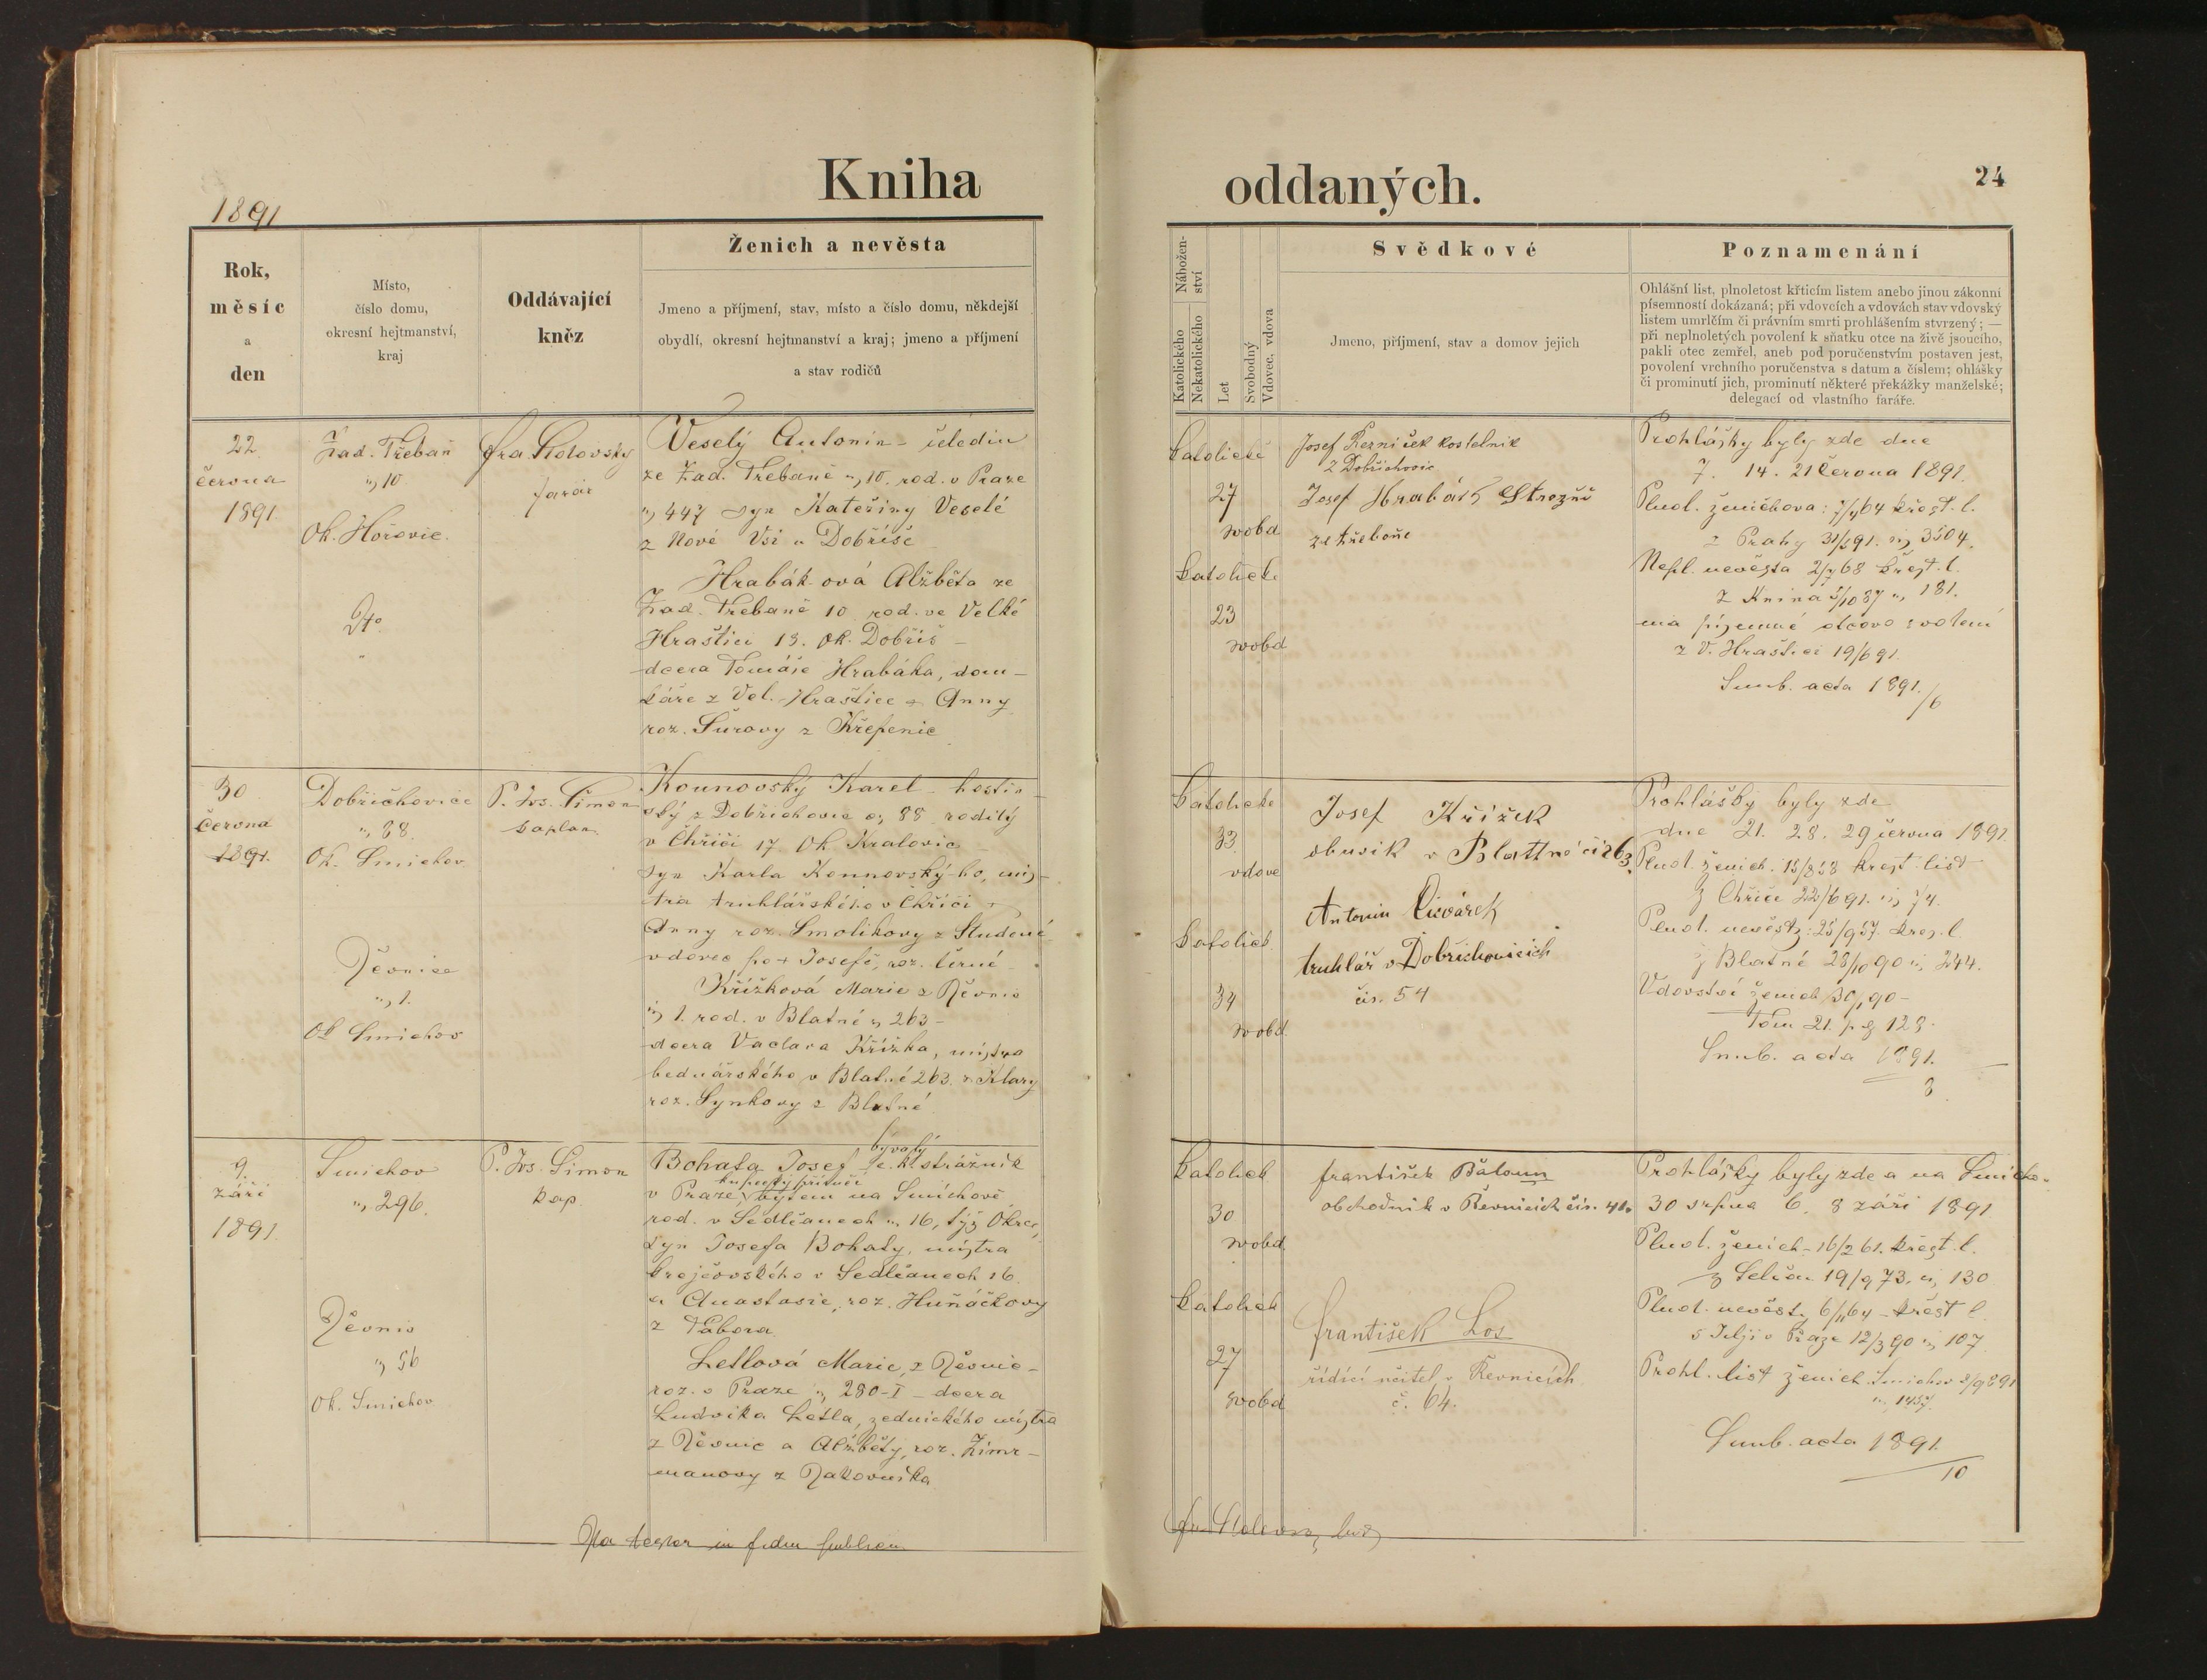 1891
Kniha
Rok,
měsíc
a
den
Místo,
číslo domu,
okresní hejtmanství,
kraj
Oddávající
kněz
Ženich a nevěsta
Jmeno a příjmení, stav, místo a číslo domu, někdejší
obydlí, okresní hejtmanství a kraj; jmeno a příjmení
a stav rodičů
22
června
1891
Zad. Třebaň
10
Ok. Hořovic.
Dto
farář
Veselý Antonín - čeledín
ze Zad. Třebaně 10. rod. v Praze
447 syn Kateřiny Veselé
z Nové Vsi u Dobříše
Hrabáková Alžběta ze
Zad. Třebaně 10 rod. ve Velké
Hraštici 13. Ok. Dobříš -
dcera Tomáše Hrabáka, dom-
káře z Vel. Hraštice a Anny
roz. Šůrovy z Křepenic
30
června
1891.
Dobřichovice
88.
Ok. Smíchov
Řevnice
1.
Ok Smíchov
P. Jos. Šimon
kaplan
Kounovský Karel - hostin-
ský z Dobřichovic 88 rodilý
v Chříči 17 Ok Kralovic
syn Karla Kounovský-ho, mis-
tra truhlářského v Chříči a
Anny roz. Smolíkovy z Studené
vdovec po + Josefě, roz. Černé
Křížková Marie z Řevnic
1. rod. v Blatné 263 -
dcera Václava Křížka, mistra
bednářského v Blatné 263. a Klary
roz. Synkovy z Blatné
9.
září
1891
Smíchov
296.
Řevnic
56
Ok. Smíchov
P. Jos. Šimon
kap.
bývalý
Bohata Josef c.k. strážník
v Praze bytem na Smíchově
rod. v Sedlčanech 16, týž Okres,
syn Josefa Bohaty, mistra
krejčovského v Sedlčanech 16
a Anastasie, roz. Huňáčkovy
z Tábora
Letlová Marie, z Řevnic -
roz. v Praze 280-I - dcera
Ludvíka Letla, zednického mistra
z Řevnic a Alžběty, roz. Zimr-
manovy z Rakovníka
oddaných.
24
Nábožen-
ství
Katolického
Nekatolického
Let
Svobodný
Vdovec, vdova
Svědkové
Jmeno, příjmení, stav a domov jejich
Poznamenání
Ohlášní list, plnoletost křticím listem anebo jinou zákonní
písemností dokázaná; při vdovcích a vdovách stav vdovský
listem umrlčím či právním smrti prohlášením stvrzený; —
při neplnoletých povolení k sňatku otce na živě jsoucího,
pakli otec zemřel, aneb pod poručenstvím postaven jest,
povolení vrchního poručenstva s datum a číslem; ohlášky
či prominutí jich, prominutí některé překážky manželské;
delegací od vlastního faráře.
27
svobd
23
svobd
Josef Řezníček kostelník
z Dobřichovic
Josef Hrabák
ze třeboně
Prohlášky byly zde dne
7. 14. 21 června 1891.
Plnol. ženichova: 7/9 64 křest. l.
z Prahy 31/5 91. 3504.
Nepl. nevěsta 2/7 68 křest. l.
z Knína 5/10 87 181.
ma písemné otcovo svolení
z V. Hraštici 19/6 91.
Snub. acta 1891./6
33
vdove
34
svobd
Josef Křížek
obuvník v Blattné čís 263.
Antonin
truhlář v Dobřichovicích
čis. 54
Prohlášky byly zde
dne 21. 28. 29 června 1891.
Plnol. ženich. 15/8 58 křest list
z Chříče 22/6 91. 74.
Plnol. nevěsty: 25/9 57. křes. l.
z Blatné 28/10 90 244.
Vdovství ženich 30/1 90 -
Tom 21. pag 128.
Snub. acta 1891.
8
30
svobd
27
svobd
františek Baloun
obchodník v Řevnicích čís. 41.
františek Los
řídící učitel v Řevnicích
č. 64.
Prohlášky byly zde a na Smícho-
30 srpna 6. 8 září 1891
Plnol. ženich - 16/2 61. křest. l.
z Selčan 19/9 73. 130
Plnol. nevěsty 6/11 64 - křest l.
s Jiljí v Praze 12/3 90 107
Prohl. list ženich Smíchov 2/9 891
1437.
Snub. acta 1891.
10